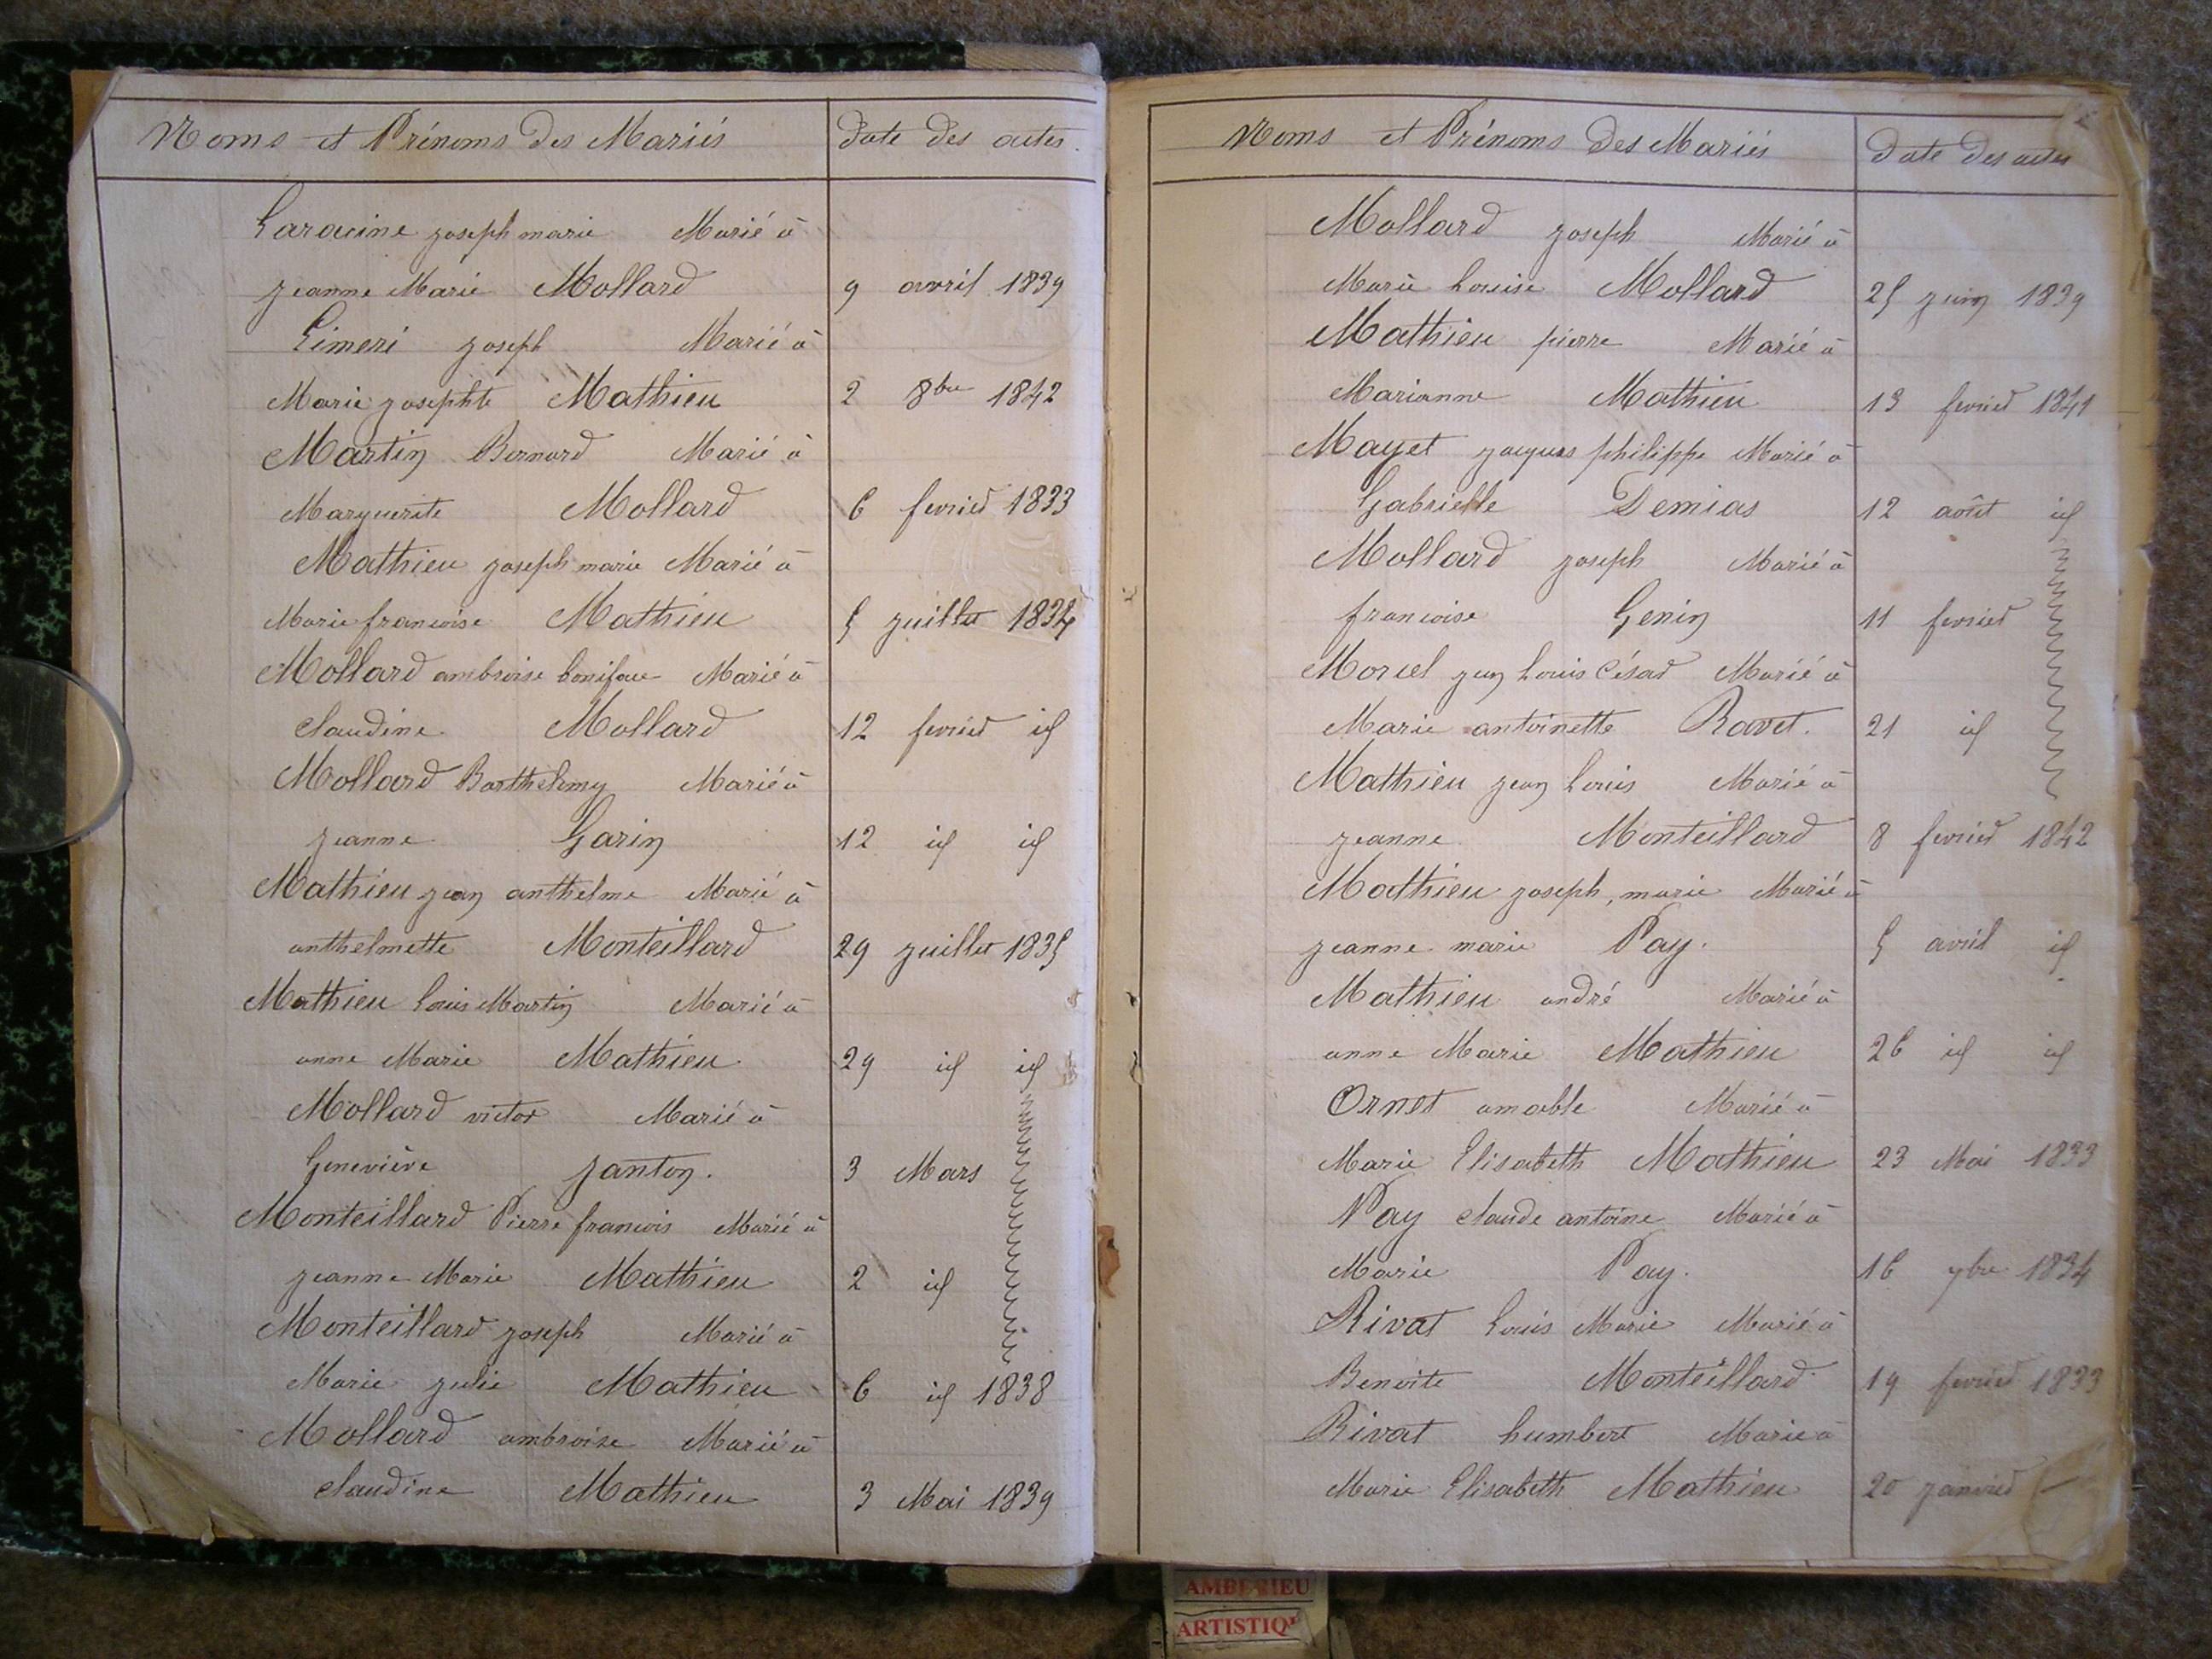 Noms et Prénoms des Mariés date des actes.
Laracine joseph marie Marié à
jeanne Marie Mollard 9 avril 1839
Limeri joseph Marié à
Marie josephte Mathieu 2 8bre 1842
Martin Bernard Marié à
Marguerite Mollard 6 fevrier 1833
Mathieu joseph marie Marié à
Marie francoise Mathieu 5 juillet 1834
Mollard ambroise boniface Marié à
claudine Mollard 12 fevrier id
Mollard Barthelemy Marié à
jeanne Garin 12 id id
Mathieu jean anthelme Marié à
anthelmette Monteillard 29 juillet 1835
Mathieu Louis Martin Marié à
anne Marie Mathieu 29 id id
Mollard victor Marié à
Geneviève janton. 3 Mars
Monteillard Pierre francois Marié à
jeanne Marie Mathieu 2 id
Monteillard joseph Marié à
Marie julie Mathieu 6 id 1838
Mollard ambroise Marié à
claudine Mathieu 3 Mai 1839
Noms et Prénoms des Mariés date des actes
Mollard joseph Marié à
Marie Louise Mollard 25 juin 1839
Mathieu pierre Marié à
Marianne Mathieu 13 fevrier 1841
Mayet jacques philippe Marié à
Gabrielle Demias 12 août id
Mollard joseph Marié à
francoise Genin 11 fevrier
Morel jean Louis César Marié à
Marie antoinette Ravet. 21 id
Mathieu jean Louis Marié à
jeanne Monteillard 8 fevrier 1842
Mathieu joseph, marie Marié à
jeanne marie Pay. 5 avril id
Mathieu andré Marié à
anne Marie Mathieu 26 id id
Ornet amable Marié à
Marie Elisabeth Mathieu 23 Mai 1833
Pay claude antoine Marié à
Marie Pay. 16 9bre 1834
Rivat Louis Marie Marié à
Benoite Monteillard 19 fevrier 1833
Rivat humbert Marié à
Marie Elisabeth Mathieu 20 janvier
AMBERIEU
ARTISTIQU